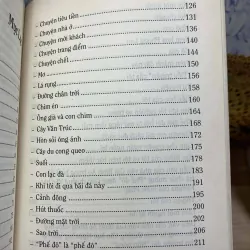 Chuyện tiêu tiền 126
Chuyện nhà ở 131
Chuyện mời khách 136
Chuyện trang điểm 140
Chuyện chết 144
Mơ 150
Lá rụng 156
Đường chân trời 158
Chim én 160
Ông già và con chim 164
Cây Văn Trúc 167
Hèn sỏi ông ảnh 170
Cây du cong queo 175
Suối 178
Con lạc đà 183
Khi tôi đi qua bãi đá này 191
Cánh đồng 195
Hút thuốc 200
Đường mặt trời 202
Sao trời 206
"Phế đô" là "phế đô" 211